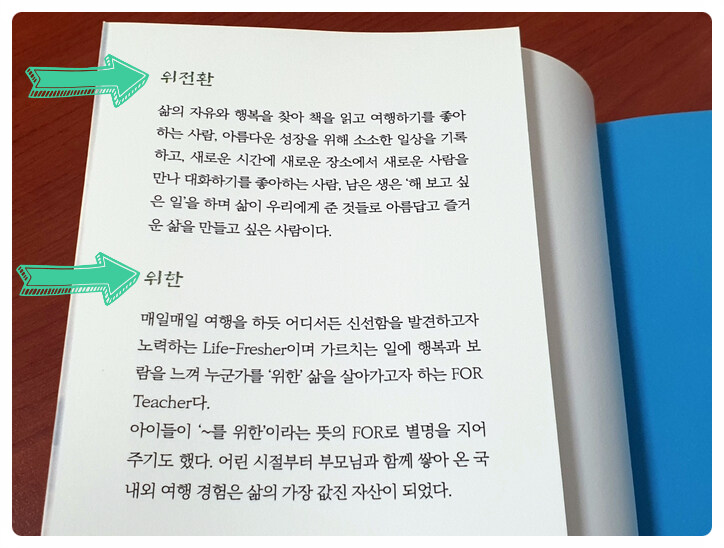 위전환
삶의 자유와 행복을 찾아 책을 읽고 여행하기를 좋아
하는 사람, 아름다운 성장을 위해 소소한 일상을 기록
하고, 새로운 시간에 새로운 장소에서 새로운 사람을
만나 대화하기를 좋아하는 사람, 남은 생은 ‘해 보고 싶
은 일’을 하며 삶이 우리에게 준 것들로 아름답고 즐거
운 삶을 만들고 싶은 사람이다.
위한
매일매일 여행을 하듯 어디서든 신선함을 발견하고자
노력하는 Life-Fresher이며 가르치는 일에 행복과 보
람을 느껴 누군가를 ‘위한’ 삶을 살아가고자 하는 FOR
Teacher다.
아이들이 ‘~를 위한’이라는 뜻의 FOR로 별명을 지어
주기도 했다. 어린 시절부터 부모님과 함께 쌓아 온 국
내외 여행 경험은 삶의 가장 값진 자산이 되었다.